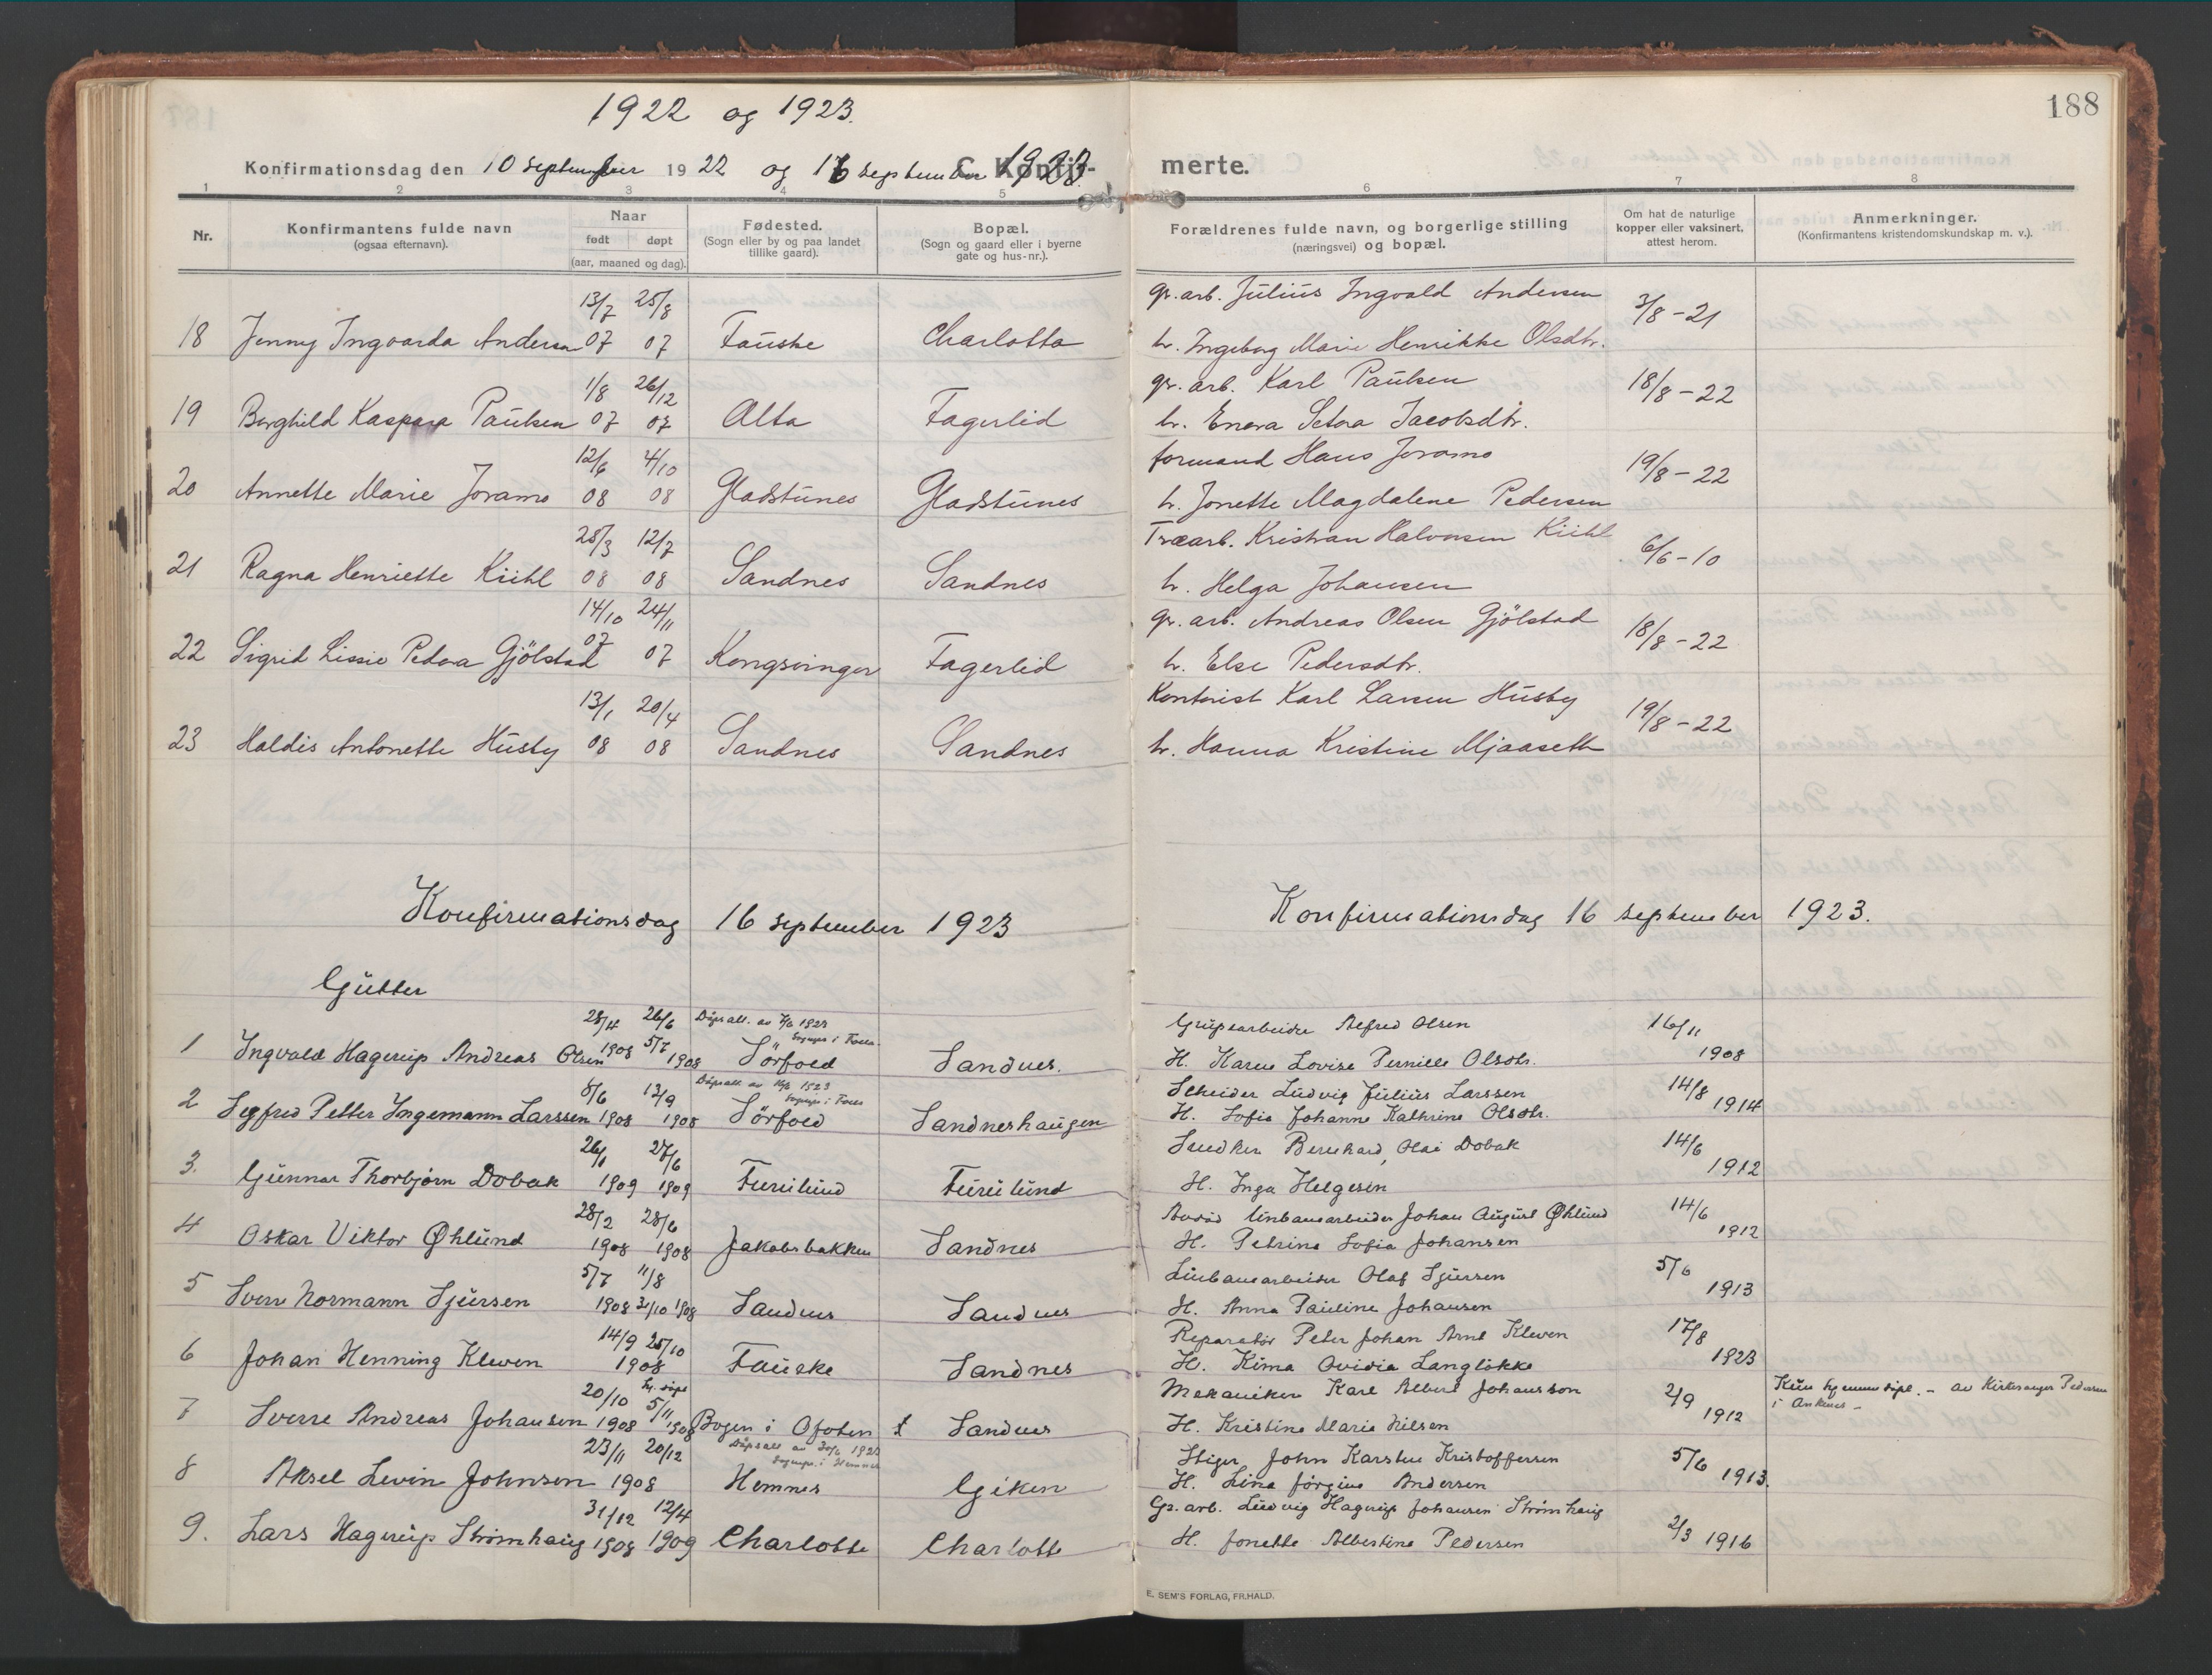 1922 og 1923.
188
Konfirmationsdag den 10 september 1922 og 16 september 1923.
C. Konfir-
merte.
1 2 3 4 5 6 7 8
Nr.
Konfirmantens fulde navn
(ogsaa efternavn).
Naar
født døpt
(aar, maaned og dag).
Fødested.
(Sogn eller by og paa landet
tillike gaard).
Bopæl.
(Sogn og gaard eller i byerne
gate og hus-nr.).
Forældrenes fulde navn, og borgerlige stilling
(næringsvei) og bopæl.
Om hat de naturlige
kopper eller vaksinert,
attest herom.
Anmerkninger.
(Konfirmantens kristendomskundskap m. v.).
13/7 25/8 gr. arb. Julius Ingvald Andersen 3/8-21
18 Jenny Ingvarda Andersen 07 07 Fauske Charlotta h. Ingeborg Marie Henrikke Olsdtr.
1/8 26/12 gr. arb. Karl Paulsen 18/8-22
19 Borghild Kaspara Paulsen 07 07 Alta Fagerlid h. Jacobsdtr.
12/6 4/10 formand Hans Joramo 19/8-22
20 Annette Marie Joramo 08 08 Gladstunes Gladstunes h. Jonette Magdalene Pedersen
28/3 12/7 Træarb. Kristian Halvorsen Kiihl 6/6-10
21 Ragna Henriette Kiihl 08 08 Sandnes Sandnes h. Helga Johansen
14/10 24/11 gr. arb. Andreas Olsen Gjölstad 18/8-22
22 Sigrid Lissie Pedora Gjölstad 07 07 Kongsvinger Fagerlid h. Else Pedersdtr.
13/1 20/4 Kontorist Karl Larsen Husby 19/8-22
23 Haldis Antonette Husby 08 08 Sandnes Sandnes h. Hanna Kristine Mjaaseth
Konfirmationsdag 16 september 1923
Konfirmationsdag 16 september 1923.
Gutter
28/4 26/6 Dåpsatt. av 7/6 1923 Grubearbeider Alfred Olsen 16/11
1 Ingvald Hagerup Andreas Olsen 1908 5/7 1908 Sörfold Sandnes. H. Karen Lovise Pernille Olsdtr. 1908
8/6 13/9 Dåpsatt. av 1923 Skeider Ludvig Julius Larssen 14/8
2 Segfred Petter Ingemann Larssen 1908 1908 Sörfold Sandneshaugen H. Sofie Johanne Kathrine Olsdtr. 1914
26/1 27/6 Snedker Bernhard Olai Dobak 14/6
3. Gunnar Thorbjørn Dobak 1909 1909 Furulund Furulund H. Inga Helgesen 1912
28/2 28/6 linbanearbeider Johan August Øhlund 14/6
4 Oskar Viktor Øhlund 1908 1908 Jakobsbakken Sandnes H. Petrine Sofie Johansen 1912
5/7 11/8 Linbanearbeider Olaf Sjursen 5/6
5 Sverr Normann Sjursen 1908 31/10 1908 Sandnes Sandnes H. Anna Pauline Johansen 1913
14/9 25/10 Reparatör Peter Johan Arnt Kleven 17/8
6 Johan Henning Kleven 1908 Fauske Sandnes H. Kima Ovidia Langlökke 1923
20/10 hj. döpt 5/11 Mekaniker Karl Albert Johansson 2/9 Kun hjemmedöpt. - av Kirkesanger Pedersen
7 Sverre Andreas Johansen 1908 1908 Bogen i Ofoten Sandnes H. Kristine Marie Nilsen 1912 i Ankenes -
23/11 20/12 Dåpsatt av 1923 Stiger John Karsten Kristoffersen 5/6
8 Aksel Levin Johnsen 1908 Hemnes Giken H. Lina Jörgine Andersen 1913.
31/12 12/4 Gr. arb. Ludvig Hagerup Johansen Strömhaug 2/3
9. Lars Hagerup Strömhaug 1908 1909 Charlotte Charlotte H. Jonette Albertine Pedersen 1916
E. SEM'S FORLAG, FR.HALD.